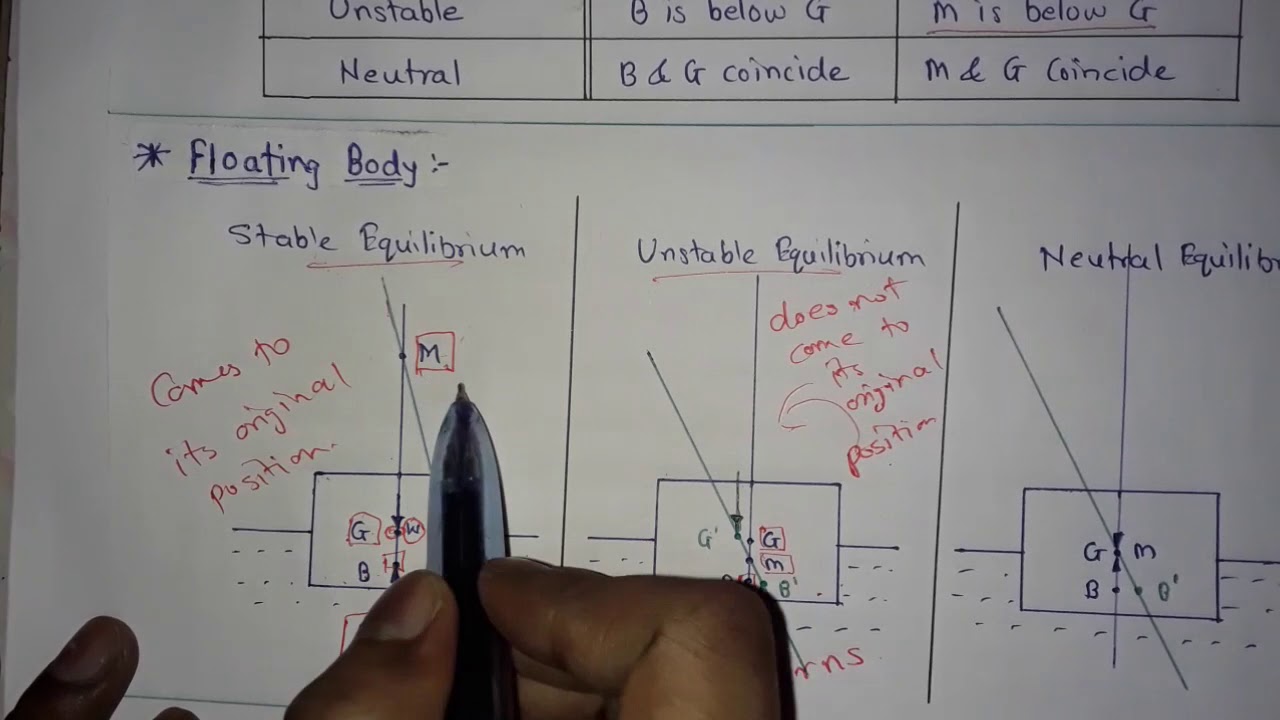 Unstable B is below G M is below G
Neutral B & G coincide M & G Coincide
* Floating Body :-
Stable Equilibrium
Comes to
its original
position.
M
G W
B
Unstable Equilibrium
does not
come to
its
original
position
G' G
M
B'
rns
Neutral Equilibr
G M
B B'